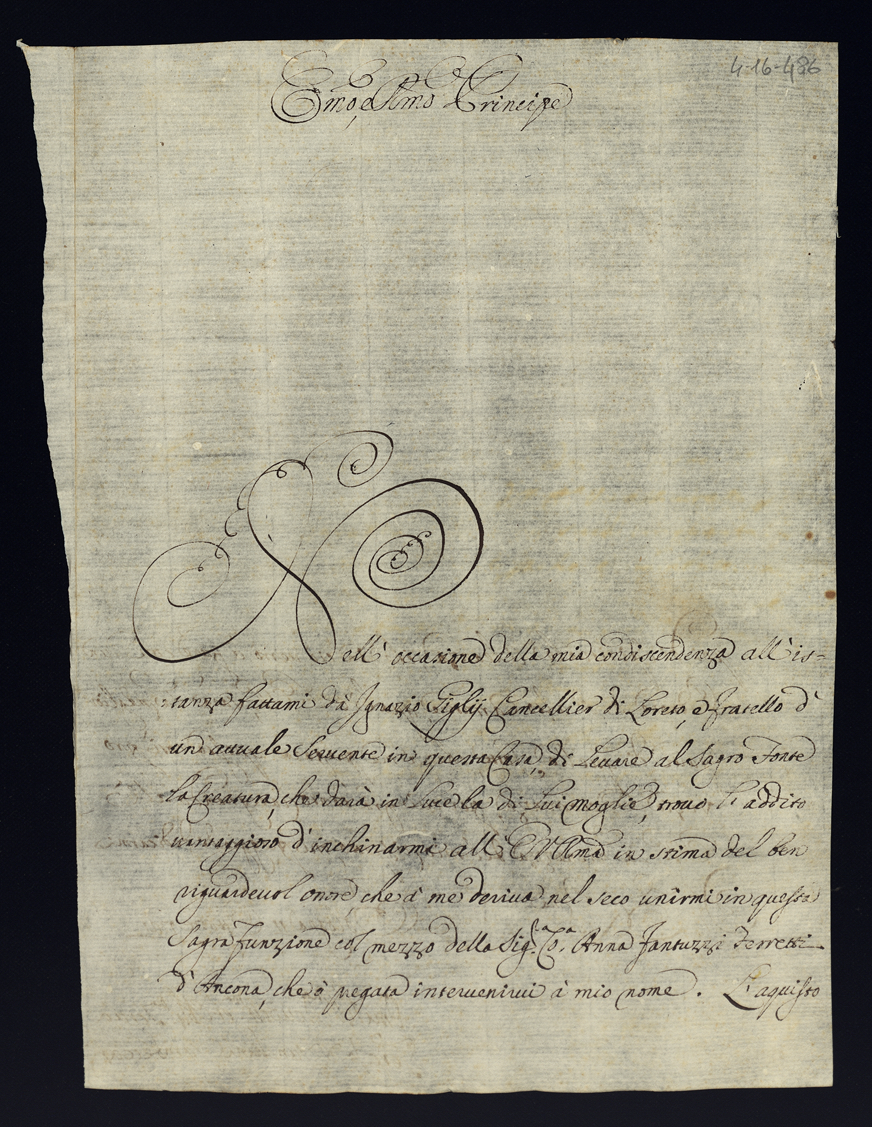 4-16-486
Emo, e Rmo Principe
Nell' occasione della mia condiscendenza all' is-
tanza fattami dà Ignazio Giglij Cancellier di Loreto, e Fratello d'
un attuale Servente in questa Casa, di Levare al Sagro Fonte
la Creatura, che darà in Luce la di Lui moglie, trovo l' addito
vantaggioso d' inchinarmi all' E V Rma in stima del ben
riguardevol onore, che à me deriva nel seco unirmi in questa
Sagra Funzione col mezzo della Sig.ra Co.a Anna Fantuzzi Ferretti
d' Ancona, che ò pregata intervenirvi à mio nome. L' aquisto